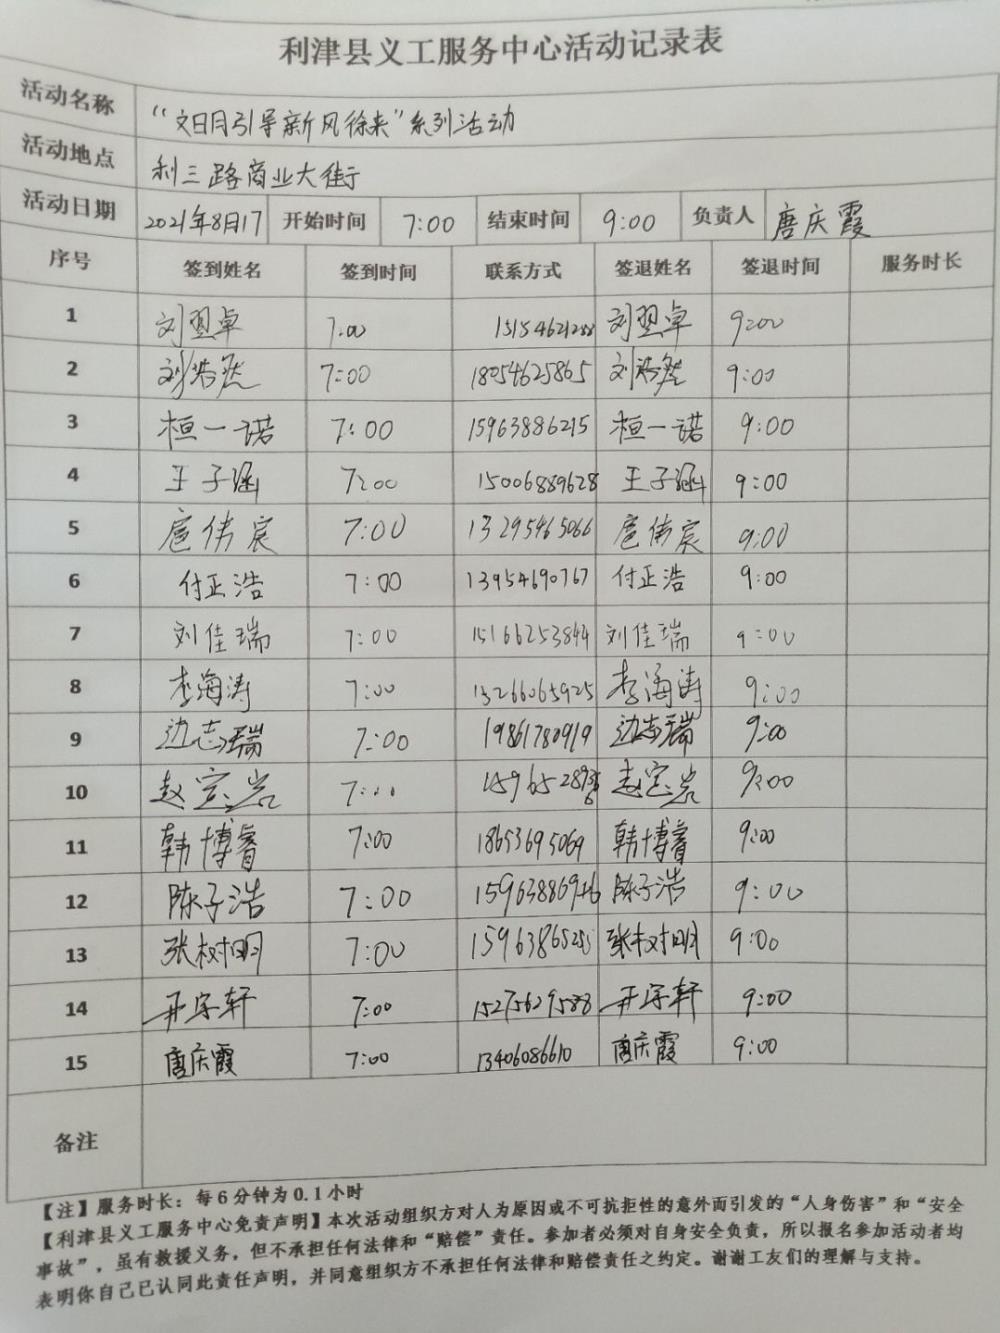 利津县义工服务中心活动记录表
活动名称 “文明引导新风徐来”系列活动
活动地点 利三路商业大街
活动日期 2021年8月17 开始时间 7:00 结束时间 9:00 负责人 唐庆霞
序号 签到姓名 签到时间 联系方式 签退姓名 签退时间 服务时长
1 刘翌卓 7:00 刘翌卓 9:00
2 刘浩然 7:00 18054625865 刘浩然 9:00
3 桓一诺 7:00 15963886215 桓一诺 9:00
4 王子涵 7:00 15006889628 王子涵 9:00
5 扈伟宸 7:00 13295465066 扈伟宸 9:00
6 付正浩 7:00 13954690767 付正浩 9:00
7 刘佳瑞 7:00 15166253844 刘佳瑞 9:00
8 李海涛 7:00 13266065925 李海涛 9:00
9 边志瑞 7:00 19861780919 边志瑞 9:00
10 赵宗岩 7:00 赵宗岩 9:00
11 韩博睿 7:00 18653695069 韩博睿 9:00
12 陈子浩 7:00 陈子浩 9:00
13 张树明 7:00 张树明 9:00
14 开宇轩 7:00 15275629588 开宇轩 9:00
15 唐庆霞 7:00 13406086610 唐庆霞 9:00
备注
【注】服务时长：每6分钟为0.1小时
【利津县义工服务中心免责声明】本次活动组织方对人为原因或不可抗拒性的意外而引发的“人身伤害”和“安全
事故”，虽有救援义务，但不承担任何法律和“赔偿”责任。参加者必须对自身安全负责，所以报名参加活动者均
表明你自己已认同此责任声明，并同意组织方不承担任何法律和赔偿责任之约定。谢谢工友们的理解与支持。